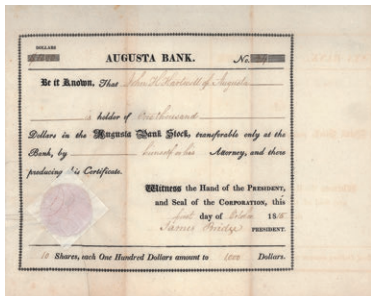 DOLLARS
AUGUSTA BANK. No.
Be it Known, That John H Hartwell of Augusta
is holder of One thousand
Dollars in the Augusta Bank Stock, transferable only at the
Bank, by himself or his Attorney, and there
producing this Certificate.
Witness the Hand of the PRESIDENT,
and Seal of the CORPORATION, this
first day of October 18
James PRESIDENT.
10 Shares, each One Hundred Dollars amount to 1000 Dollars.